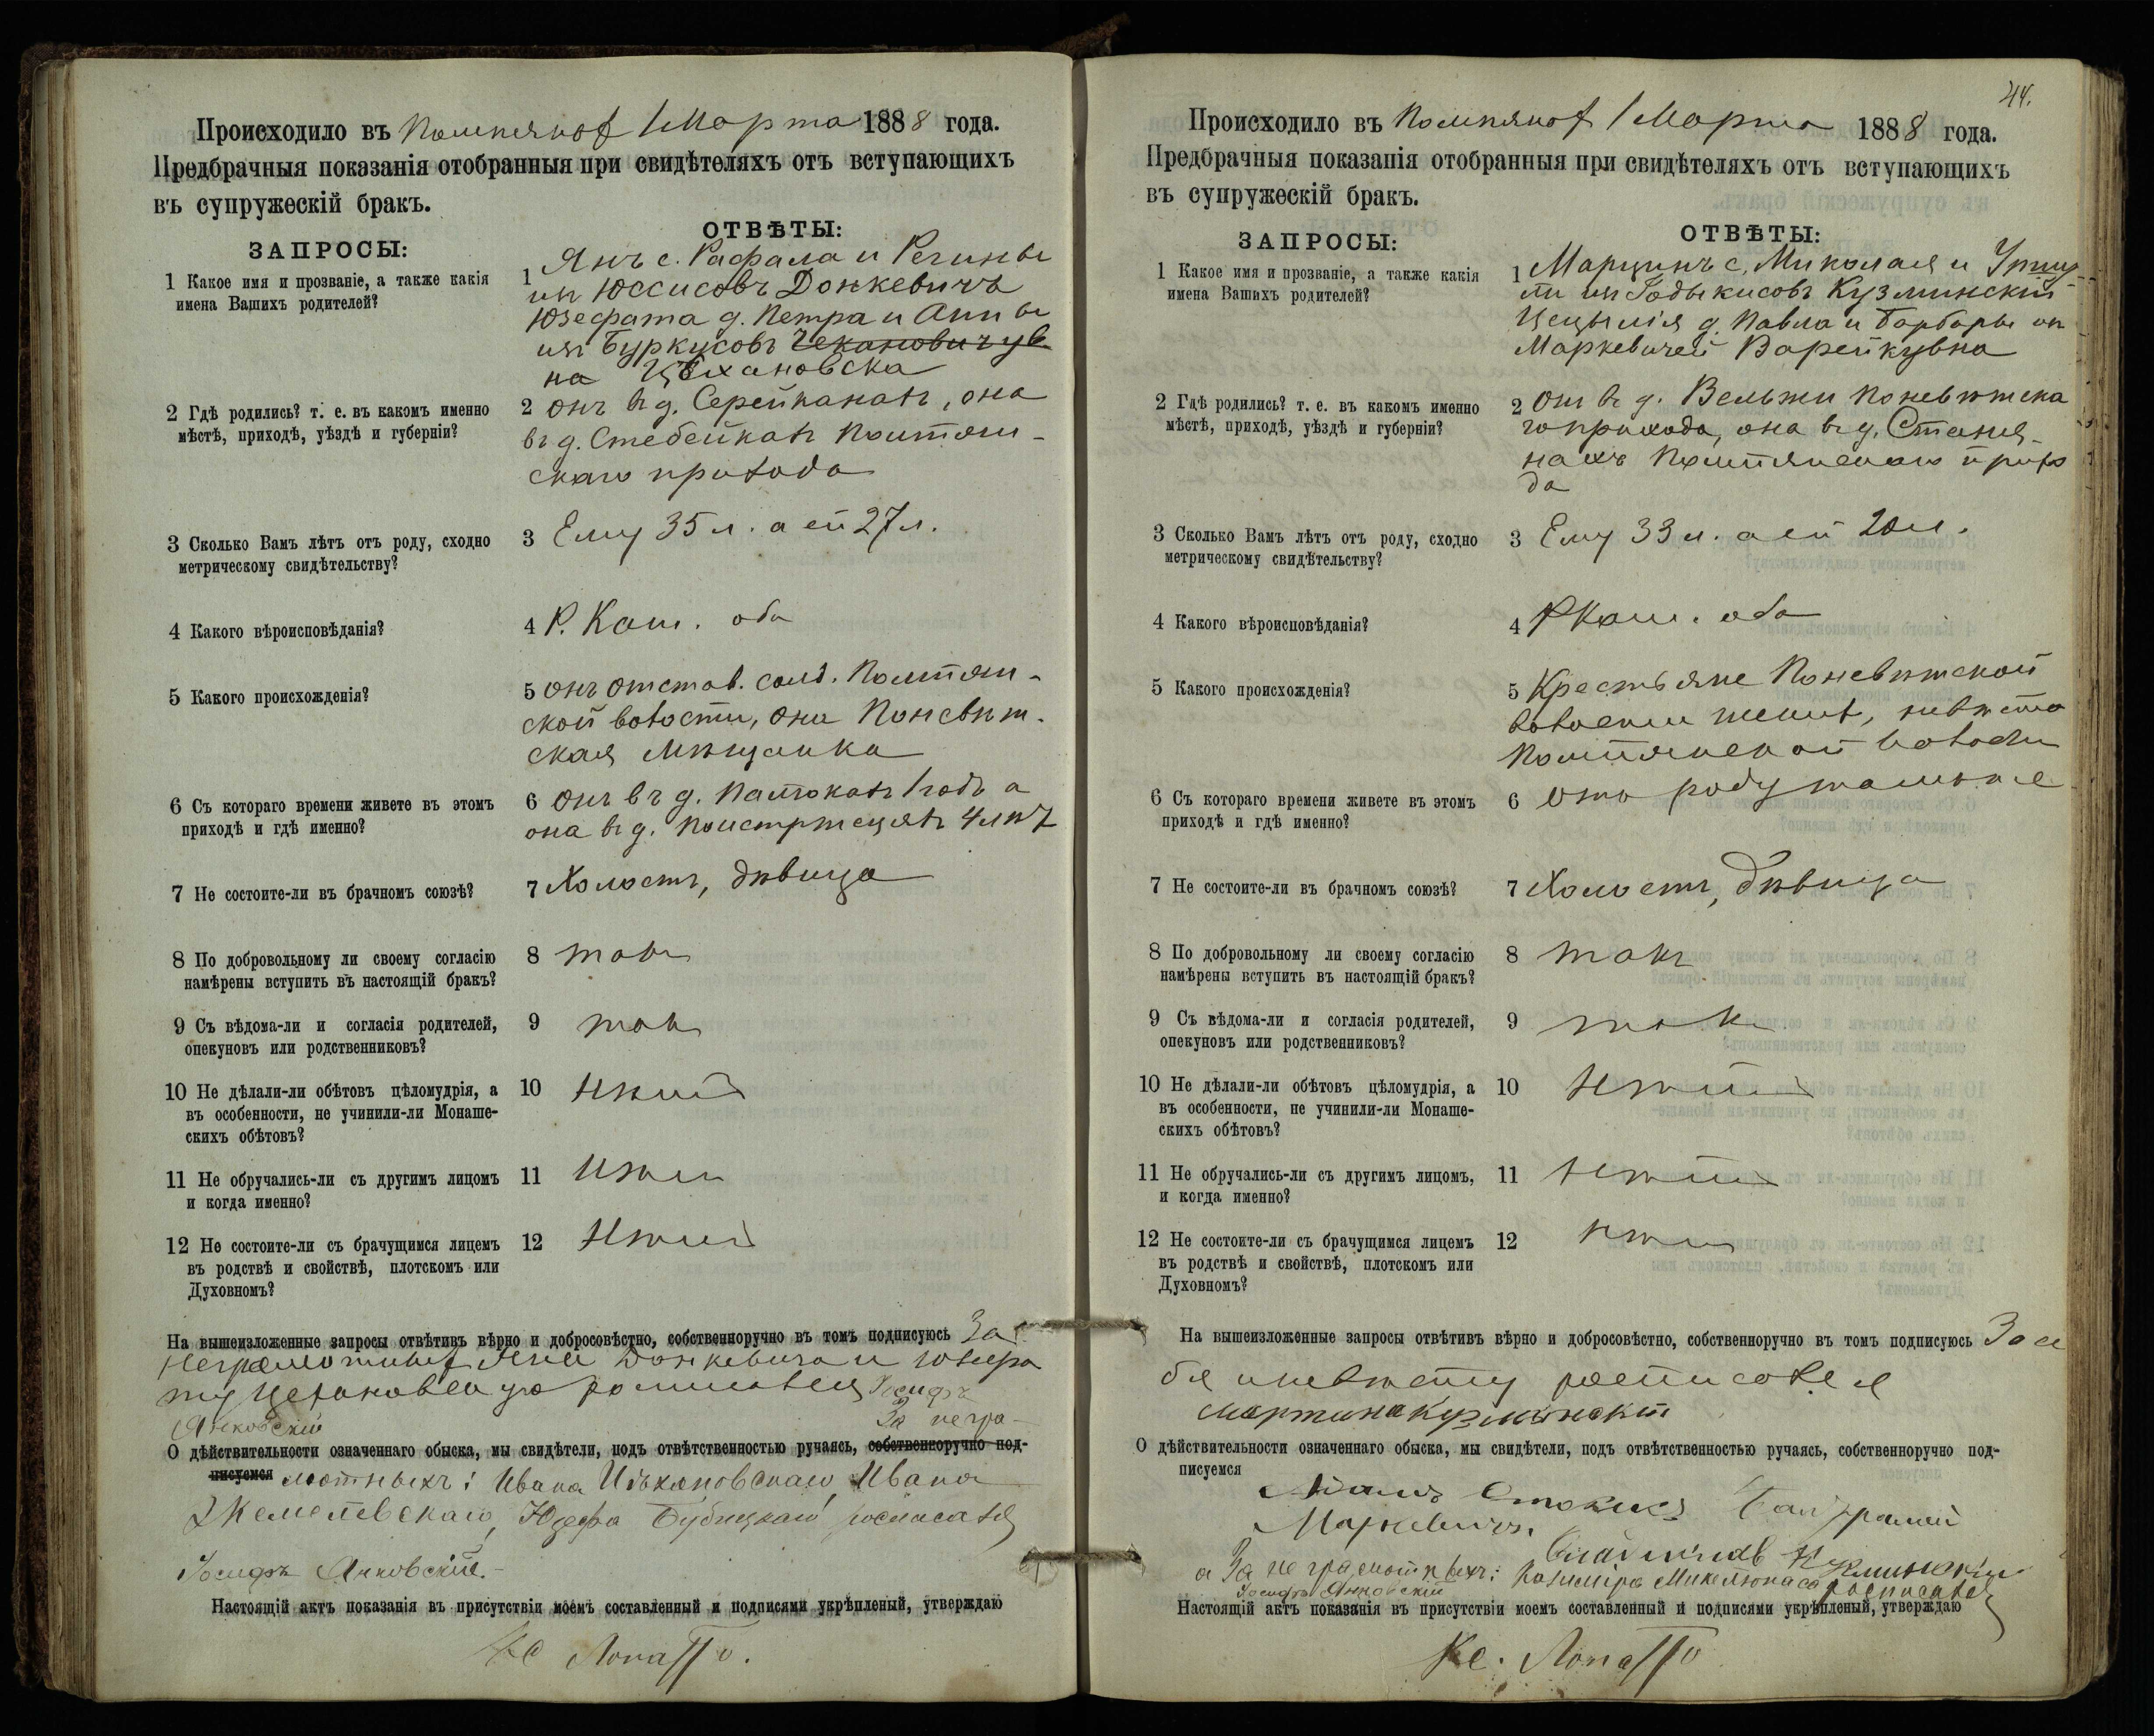 Происходило въ Помпянах 1 Марта 1888 года.
Предбрачныя показанія отобранныя при свидѣтеляхъ отъ вступающихъ
въ супружескій бракъ.
ЗАПРОСЫ:
ОТВѢТЫ:
1 Какое имя и прозваніе, а также какія
имена Вашихъ родителей?
1 Янъ с. Рафала и Регины
из Юссисовъ Донкевичъ
Юзефата д. Петра и Анны
из Буркусовъ
на Цѣхановска
2 Гдѣ родились? т. е. въ какомъ именно
мѣстѣ, приходѣ, уѣздѣ и губерніи?
2 онъ въ д. , она
въ д. Стебейках Помпян-
скаго прихода
3 Сколько Вамъ лѣтъ отъ роду, сходно
метрическому свидѣтельству?
3 Ему 35 л. а ей 27 л.
4 Какого вѣроисповѣданія?
4 Р. Кат. оба
5 Какого происхожденія?
5 онъ отстав. солд. Помпян-
ской волости, она Поневѣж-
ская мѣщанка
6 Съ котораго времени живете въ этомъ
приходѣ и гдѣ именно?
6 онъ въ д. 1 годъ а
она въ д. 4 лѣт
7 Не состоите-ли въ брачномъ союзѣ?
7 Холостъ, дѣвица
8 По добровольному ли своему согласію
намѣрены вступить въ настоящій бракъ?
8 такъ
9 Съ вѣдома-ли и согласія родителей,
опекуновъ или родственниковъ?
9 такъ
10 Не дѣлали-ли обѣтовъ цѣломудрія, а
въ особенности, не учинили-ли Монаше-
скихъ обѣтовъ?
10 нѣтъ
11 Не обручались-ли съ другимъ лицомъ
и когда именно?
11 нѣтъ
12 Не состоите-ли съ брачущимся лицемъ
въ родствѣ и свойствѣ, плотскомъ или
Духовномъ?
12 нѣтъ
На вышеизложенные запросы отвѣтивъ вѣрно и добросовѣстно, собственноручно въ томъ подписуюсь За
неграмотных Яна Донкевича и Юзефа
ту Цехановскую росписался Іосифъ
Янковскій За негра-
О дѣйствительности означеннаго обыска, мы свидѣтели, подъ отвѣтственностью ручаясь, собственноручно под-
писуемся мотныхъ: Ивана Цѣхановскаго, Ивана
Жемелевскаго, Юзефа Бубицкаго росписался
Іосифъ Янковскій.-
Настоящій актъ показанія въ присутствіи моемъ составленный и подписями укрѣпленый, утверждаю
Кс Лопатто.
44.
Происходило въ Помпянах 1 Марта 1888 года.
Предбрачныя показанія отобранныя при свидѣтеляхъ отъ вступающихъ
въ супружескій бракъ.
ЗАПРОСЫ:
ОТВѢТЫ:
1 Какое имя и прозваніе, а также какія
имена Вашихъ родителей?
1 Марцинъ с. Миколая и
Кузминскій
Цецылія д. Павла и Барбары из
Маркевичей
2 Гдѣ родились? т. е. въ какомъ именно
мѣстѣ, приходѣ, уѣздѣ и губерніи?
2 Онъ въ д. Вельжи Поневѣжска
го прихода, она въ д. Станя-
нахъ Помпянскаго прихо
да
3 Сколько Вамъ лѣтъ отъ роду, сходно
метрическому свидѣтельству?
3 Ему 33 л. а ей 20 л.
4 Какого вѣроисповѣданія?
4 Р Кат. оба
5 Какого происхожденія?
5 Крестьяне Поневѣжской
волости жених, невѣста
Помпянской волости
6 Съ котораго времени живете въ этомъ
приходѣ и гдѣ именно?
6 Отъ роду тамъже
7 Не состоите-ли въ брачномъ союзѣ?
7 Холостъ, дѣвица
8 По добровольному ли своему согласію
намѣрены вступить въ настоящій бракъ?
8 такъ
9 Съ вѣдома-ли и согласія родителей,
опекуновъ или родственниковъ?
9 такъ
10 Не дѣлали-ли обѣтовъ цѣломудрія, а
въ особенности, не учинили-ли Монаше-
скихъ обѣтовъ?
10 нѣтъ
11 Не обручались-ли съ другимъ лицомъ,
и когда именно?
11 нѣтъ
12 Не состоите-ли съ брачущимся лицемъ
въ родствѣ и свойствѣ, плотскомъ или
Духовномъ?
12 нѣтъ
На вышеизложенные запросы отвѣтивъ вѣрно и добросовѣстно, собственноручно въ томъ подписуюсь За се
бя и невѣсту росписался
Мартина Кузмѣнскій
О дѣйствительности означеннаго обыска, мы свидѣтели, подъ отвѣтственностью ручаясь, собственноручно под-
писуемся
Маркевичъ.
Кузминскій
а За неграмотныхъ: Казиміра росписался
Іосифъ Янковскій
Настоящій актъ показанія въ присутствіи моемъ составленный и подписями укрѣпленый, утверждаю
Кс. Лопатто